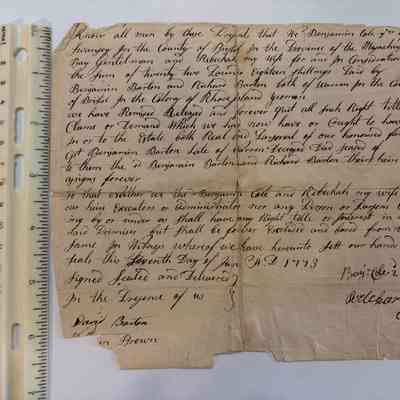 Know all men by these Presents that We Benjamin Cole
Swanzey In the County of Bristol In the Province of the Massachu
Bay Gentleman and Rebekah my Wife for and In Consideration
the Sum of twenty two Pounds Eighteen Shillings Paid by
Benjamin Barton and Richard Barton both of Warren In the Coun
of Bristol In the Colony of Rhode island yeomen
we have Remised Released and forever Quit all such Right Titl
Claime or Demand Which we had now have or Ought to have
In or to the Estate both Real and Personal of our honoured fa
Benjamin Barton Late of Warren Deceased
to them the sd Benjamin Barton and Richard Barton their heirs
asigns forever
So that neither we the Benjamin Cole and Rebekah my wife
our heirs Executors or Administrators nor any Person or Persons
ing by or under us shall have any Right title or Interest in
said Premises but shall be forever Excluded and bared from
Same In Witness whereof we have hereunto sett our hand
seals this Seventh Day of June A D 1773
Signed Sealed and Delivered
In the Presence of us
Benj Cole
David Barton
Rebekah
Brown